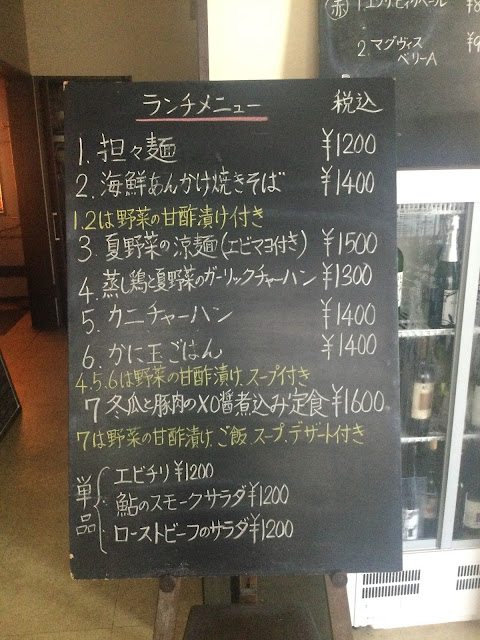 ランチメニュー 税込
1. 担々麺 ¥1200
2. 海鮮あんかけ焼きそば ¥1400
1.2は野菜の甘酢漬け付き
3. 夏野菜の涼麺(エビマヨ付き) ¥1500
4. 蒸し鶏と夏野菜のガーリックチャーハン ¥1300
5. カニチャーハン ¥1400
6. かに玉ごはん ¥1400
4.5.6は野菜の甘酢漬け、スープ付き
7 冬瓜と豚肉のXO醤煮込み定食 ¥1600
7は野菜の甘酢漬け、ご飯、スープ、デザート付き
単品
エビチリ ¥1200
鮎のスモークサラダ ¥1200
ローストビーフのサラダ ¥1200
赤
2. マグヴィス
ベリーA